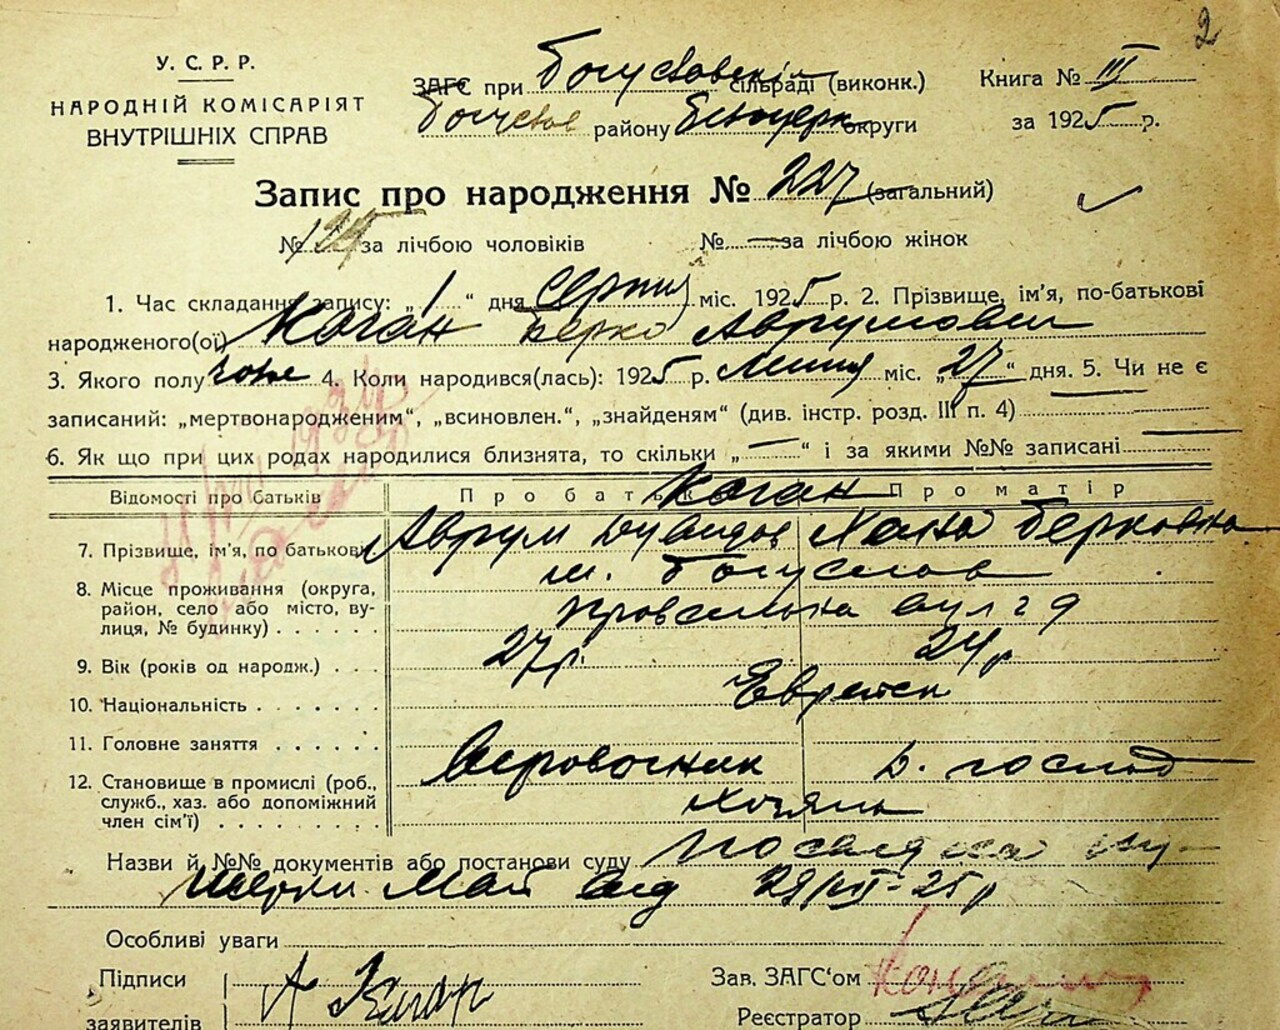 2
У. С. Р. Р.
НАРОДНІЙ КОМІСАРІЯТ
ВНУТРІШНІХ СПРАВ
ЗАГС при Богуславскій сільраді (виконк.)
Богуслав района району Білоцерк округи
Книга № III
за 1925 р.
Запис про народження № 227 (загальний)
№ 125 за лічбою чоловіків № — за лічбою жінок
1. Час складання запису: „1“ дня Серпня міс. 1925 р. 2. Прізвище, ім'я, по-батькові
народженого(ої) Коган Берко Аврумович
3. Якого полу чолов 4. Коли народився(лась): 1925 р. Липня міс. „27“ дня. 5. Чи не є
записаний: „мертвонародженим“, „всиновлен.“, „знайденям“ (див. інстр. розд. III п. 4) —
6. Як що при цих родах народилися близнята, то скільки „—“ і за якими №№ записані —
Відомості про батьків Про батька Коган Про матір
7. Прізвище, ім'я, по батькові Аврум Дувидов Хана Берковна
8. Місце проживання (округа, м. Богуслав
район, село або місто, ву-
лиця, № будинку) вул 29
9. Вік (років од народж.) 27 р. 24 р
10. Національність Еврейск
11. Головне заняття
12. Становище в промислі (роб., д. господ
служб., хаз. або допоміжний Хозяин
член сім'ї)
Назви й №№ документів або постанови суду
Май від 29/VII-25 р
Особливі уваги
Підписи
заявителів А Коган
Зав. ЗАГС'ом
Реєстратор